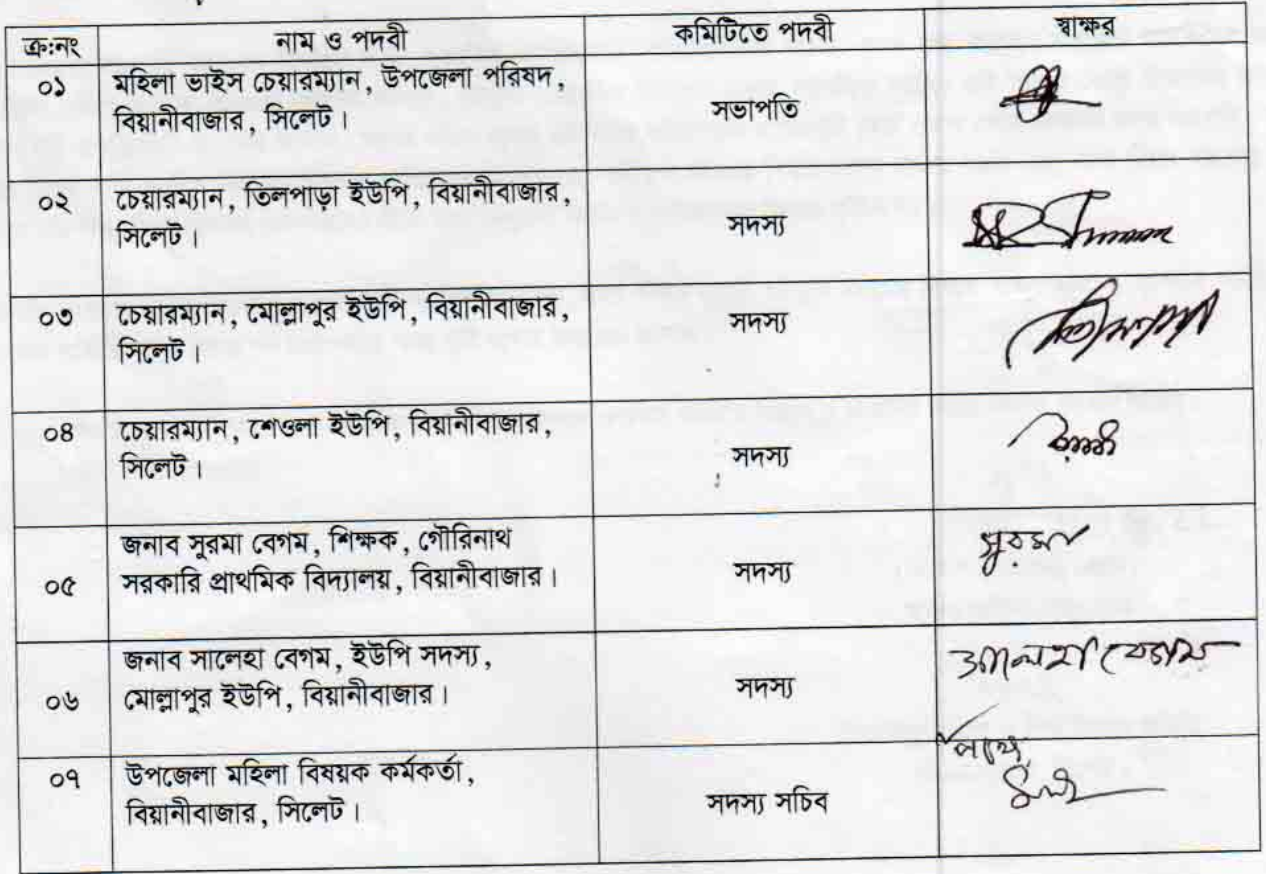 ক্র:নং নাম ও পদবী কমিটিতে পদবী স্বাক্ষর
০১ মহিলা ভাইস চেয়ারম্যান, উপজেলা পরিষদ,
বিয়ানীবাজার, সিলেট। সভাপতি
০২ চেয়ারম্যান, তিলপাড়া ইউপি, বিয়ানীবাজার,
সিলেট। সদস্য
০৩ চেয়ারম্যান, মোল্লাপুর ইউপি, বিয়ানীবাজার,
সিলেট। সদস্য
০৪ চেয়ারম্যান, শেওলা ইউপি, বিয়ানীবাজার,
সিলেট। সদস্য
জনাব সুরমা বেগম, শিক্ষক, গৌরিনাথ
০৫ সরকারি প্রাথমিক বিদ্যালয়, বিয়ানীবাজার। সদস্য সুরমা
জনাব সালেহা বেগম, ইউপি সদস্য,
০৬ মোল্লাপুর ইউপি, বিয়ানীবাজার। সদস্য সালেহা বেগম
০৭ উপজেলা মহিলা বিষয়ক কর্মকর্তা,
বিয়ানীবাজার, সিলেট। সদস্য সচিব পক্ষে